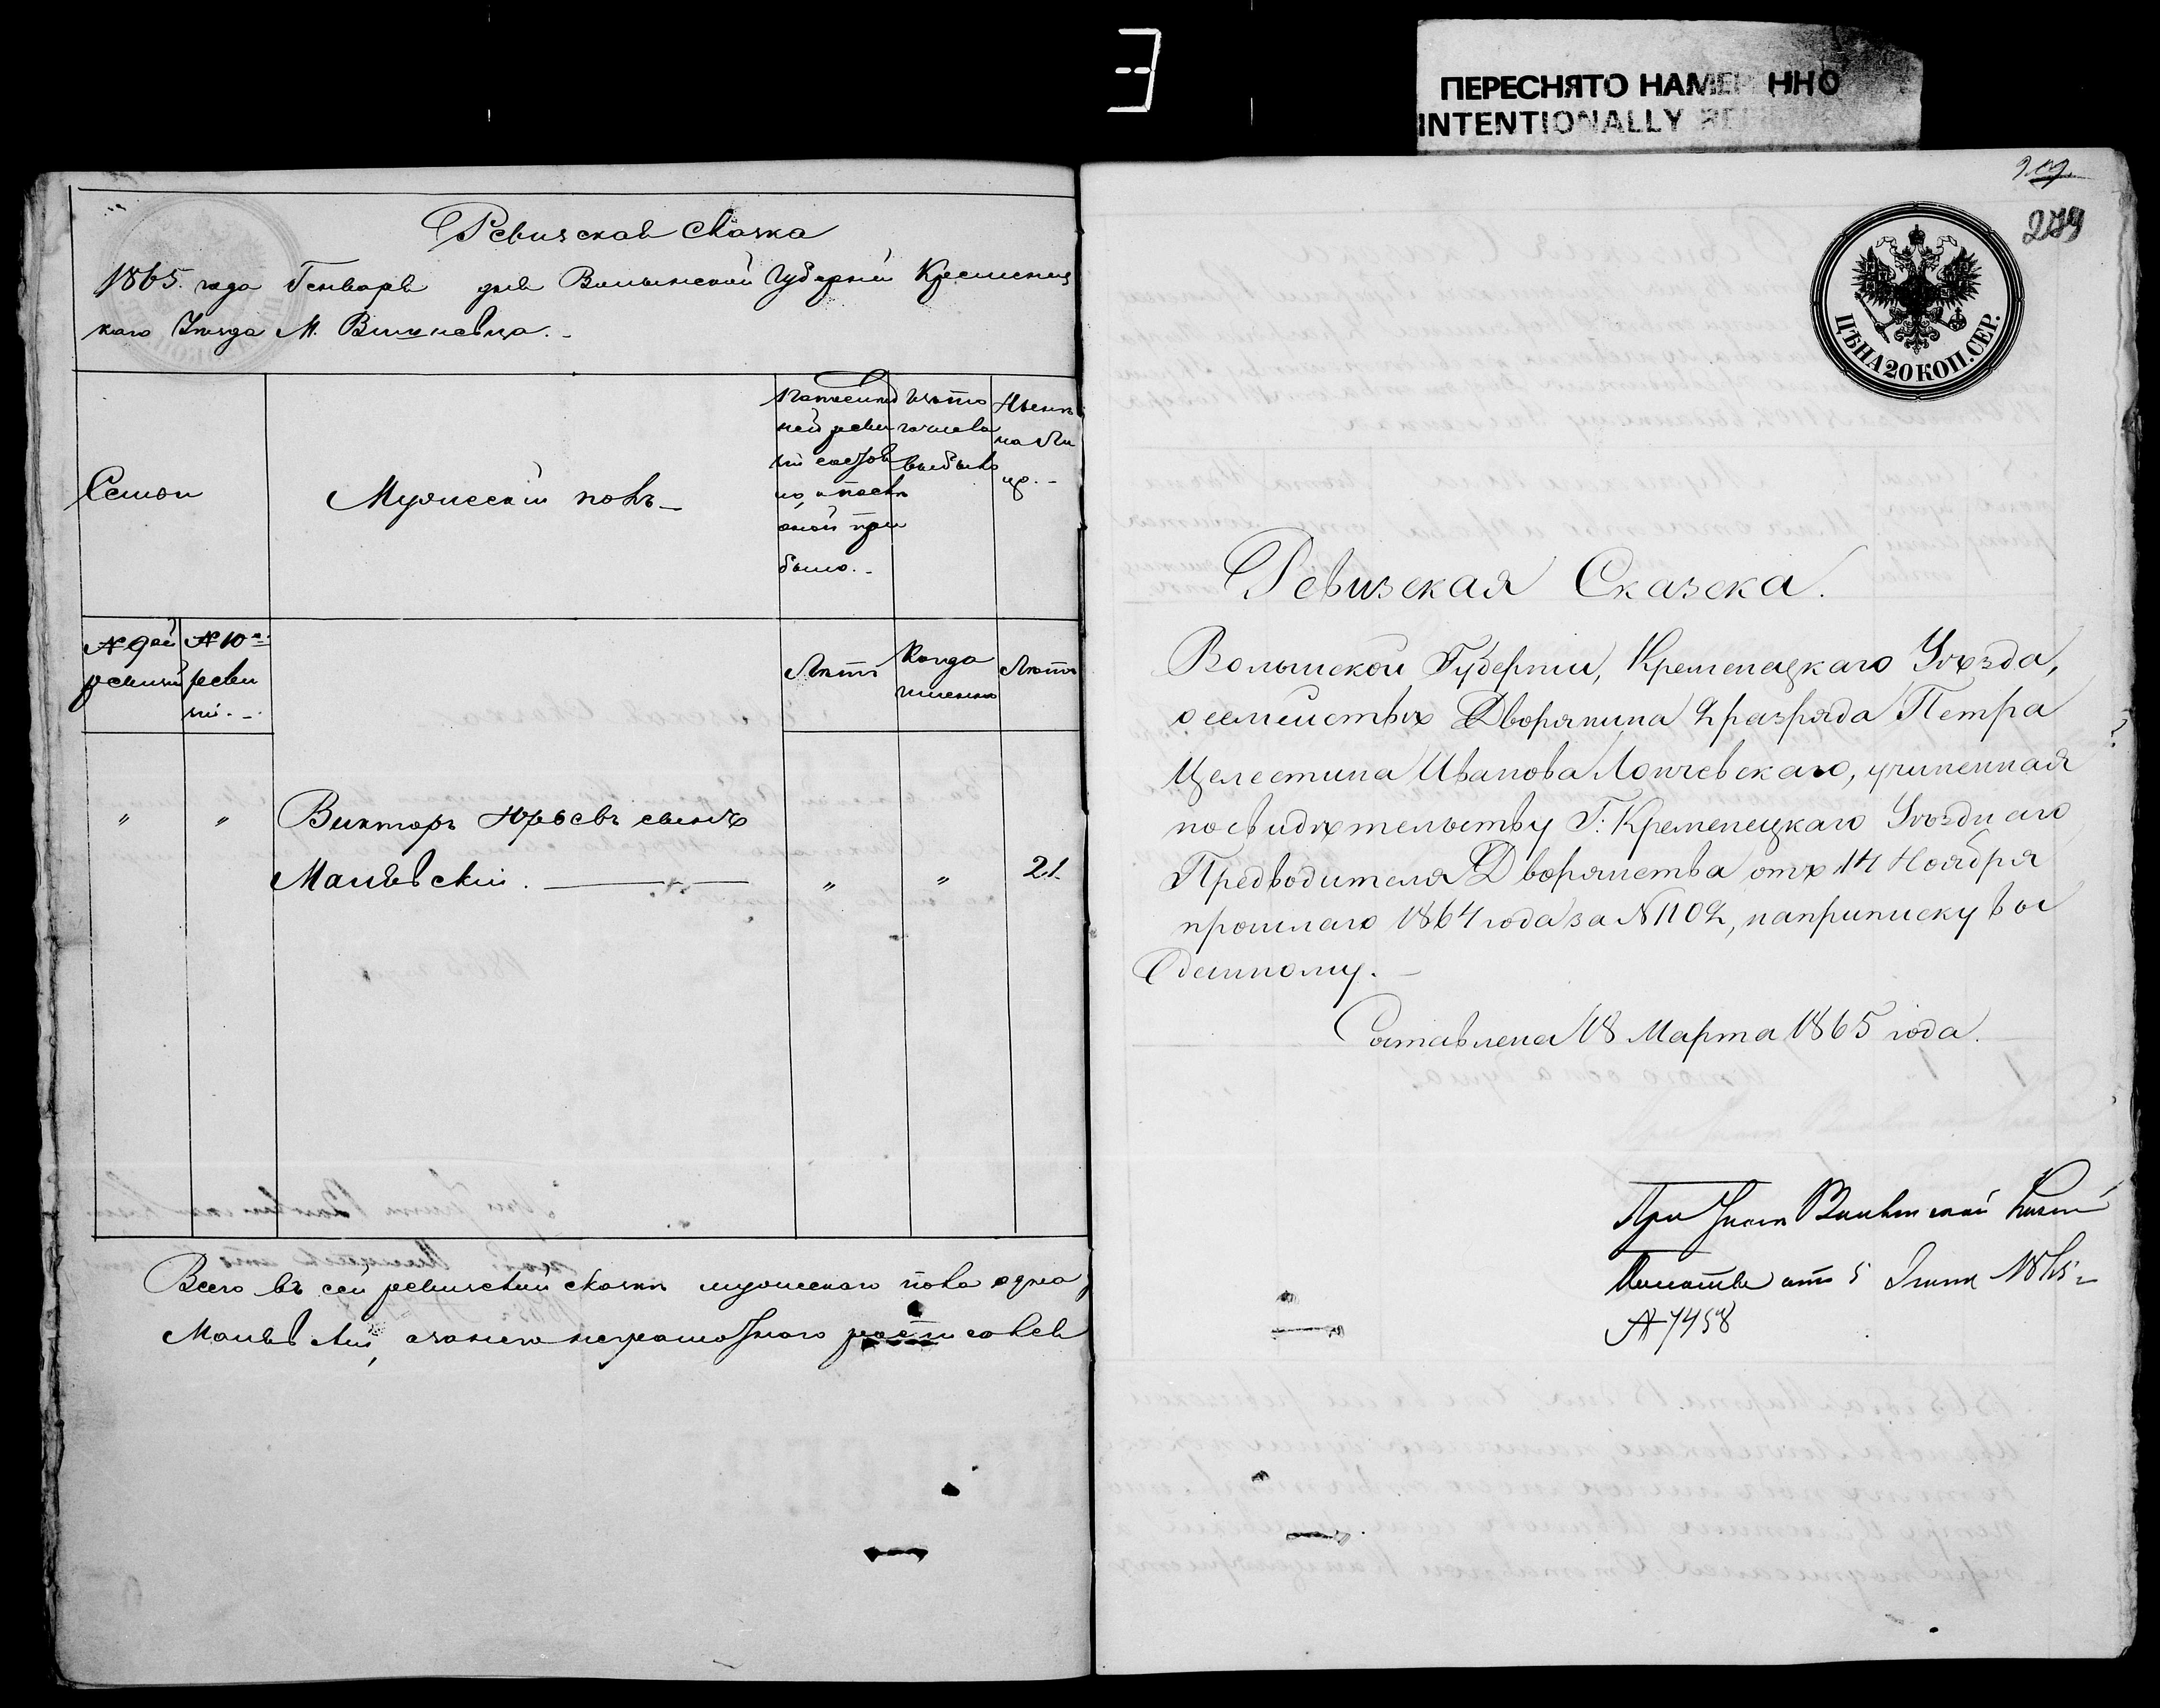 ПЕРЕСНЯТО НАМЕРЕННО
INTENTIONALLY
Ревизская сказка
1865 года Генваря дня Волынской Губерніи Кременец
каго Уезда М. Вишневца.
Семьи
Мужескій полъ
По последней ревизіи состояло и после оной прибыло.
Изъ того числа выбыло
Ныне на лицо.
№ 9ой ревизіи
№ 10й ревизіи.
Летъ
Когда именно
Летъ
" " Викторъ Юрьевъ сынъ
Малевскій. " " 21.
Всего въ сей ревизской сказке мужескаго пола одна
Малевскій, а за него неграмотнаго росписался
209.
279
ЦѢНА 20 КОП. СЕР.
Ревизская Сказска.
Волынской Губерніи, Кременецкаго Уѣзда,
о семействѣ Дворянина 2 разряда Петра
Целестина Иванова Лончевскаго, учиненная
по свидѣтельству Г: Кременецкаго Уѣзднаго
Предводителя Дворянства отъ 14 Ноября
прошлаго 1864 года за № 1102, на приписку вы
данному.
Составлена 18 Марта 1865 года.
При Указе Волынской Казен
Палаты отъ 5 1865 г
№ 7458